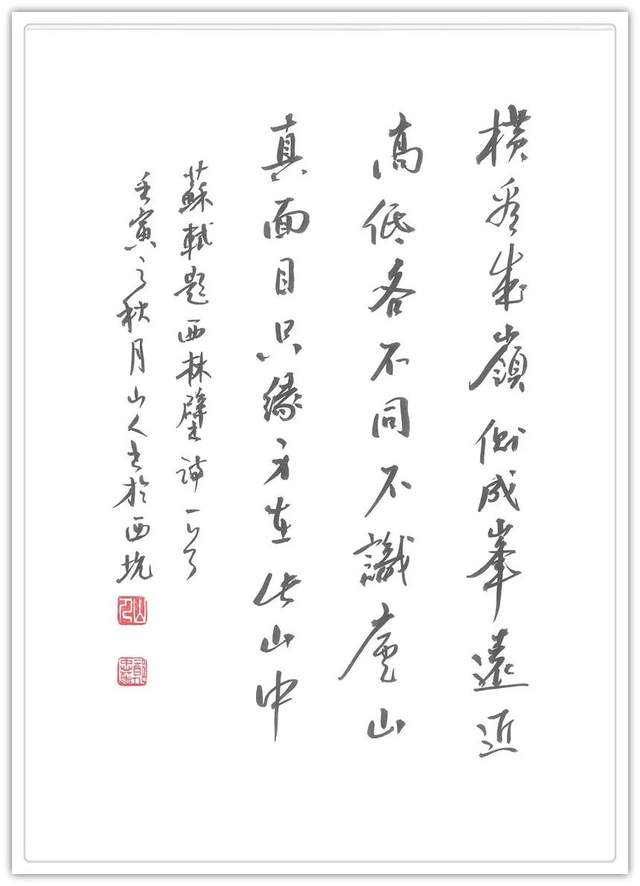 橫看成嶺側成峯遠近
高低各不同不識廬山
真面目只緣身在此山中
蘇軾題西林壁詩一首
壬寅之秋月山人书於西坑
山人